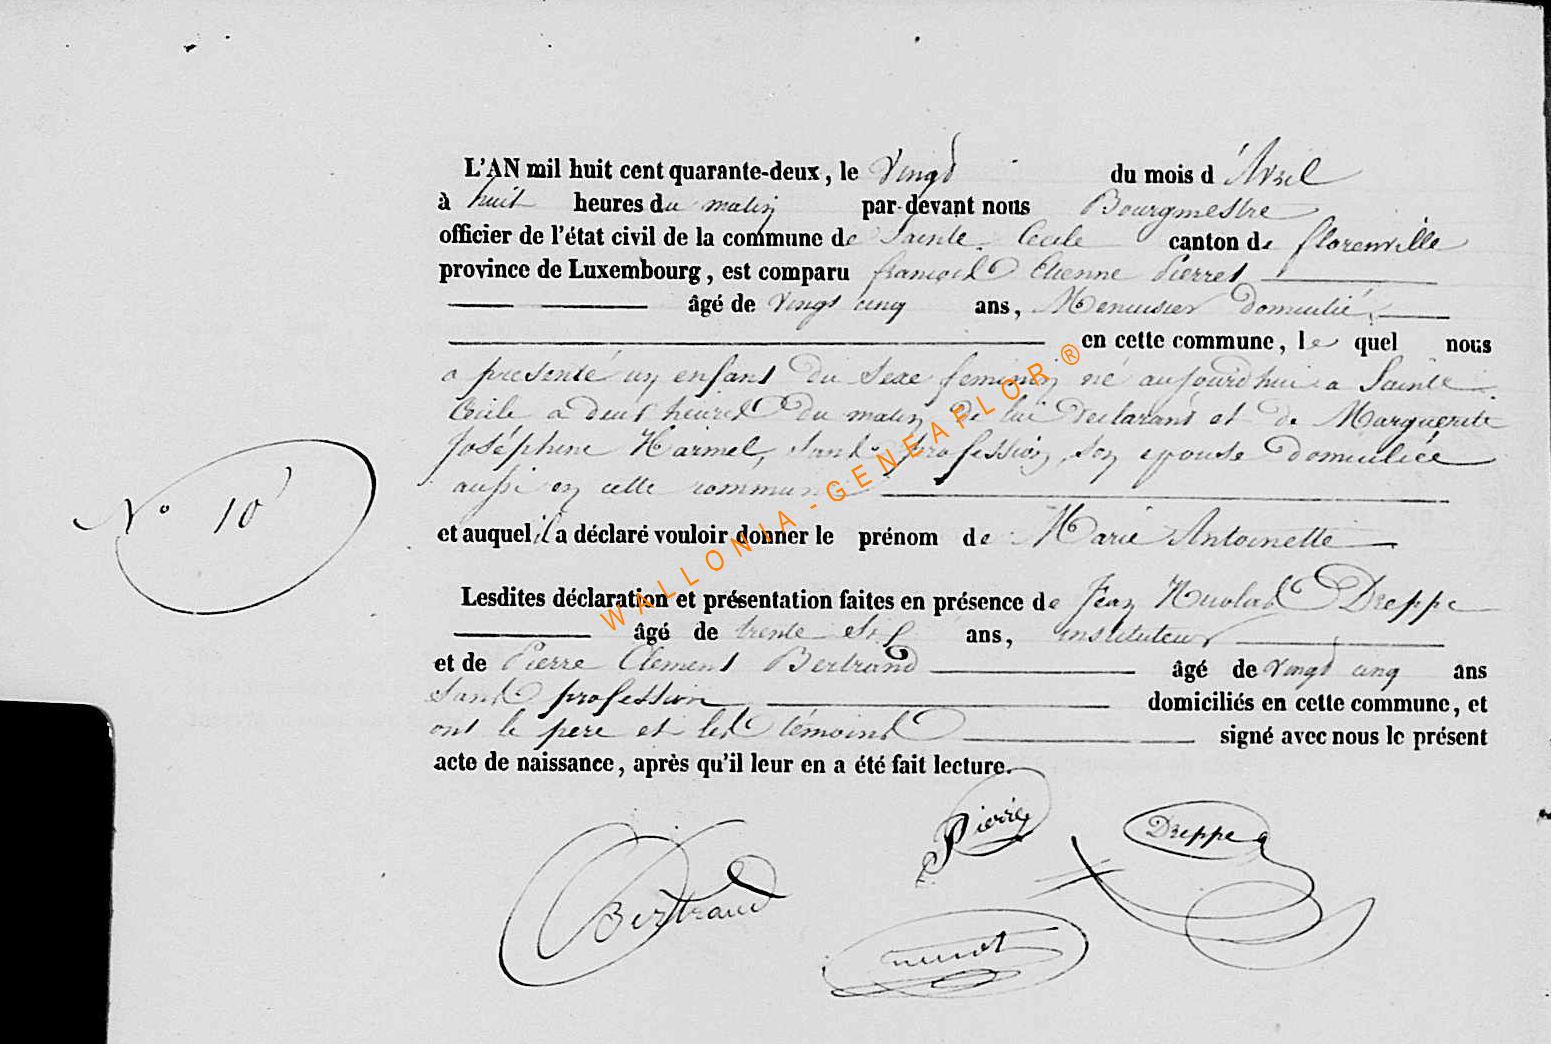 L'AN mil huit cent quarante-deux, le vingt du mois d'Avril
à huit heures du matin par-devant nous Bourgmestre
officier de l'état civil de la commune de Sainte Cecile canton de florenville
province de Luxembourg, est comparu françois Etienne Pierret
âgé de vingt cinq ans, Menuisier domicilié
en cette commune, le quel nous
a presenté un enfant du sexe feminin né aujourd'hui a Sainte
Cecile a deux heures du matin de lui declarant et de Marguerite
Joséphine Harmel, sans profession, son epouse domiciliée
aussi en cette commune
et auquel il a déclaré vouloir donner le prénom de Marie Antoinette
N° 10
Lesdites déclaration et présentation faites en présence de Jean Nicolas Dreppe
âgé de trente ans, instituteur
et de Pierre Clement Bertrand âgé de vingt cinq ans
sans profession domiciliés en cette commune, et
ont le pere et les témoins signé avec nous le présent
acte de naissance, après qu'il leur en a été fait lecture.
Pierre Dreppe
Bertrand
WALLONIA - GENEAFLOR ®